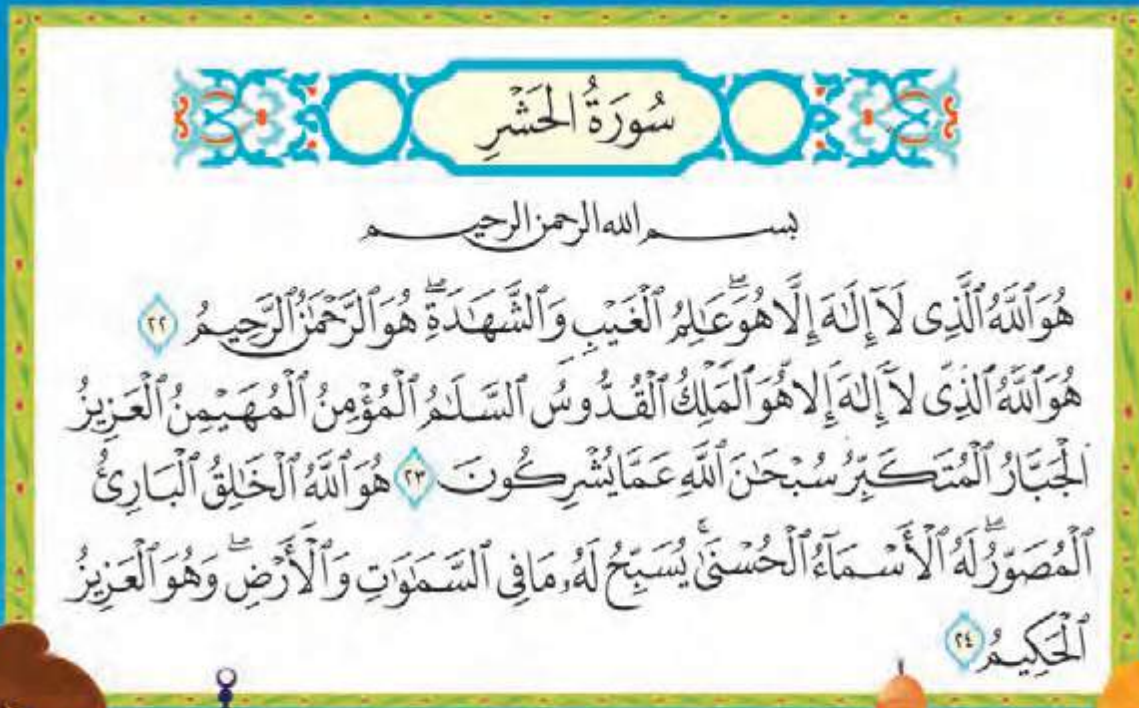 سُورَةُ الْحَشْرِ
بسم الله الرحمن الرحيم
هُوَ ٱللَّهُ ٱلَّذِى لَآ إِلَٰهَ إِلَّا هُوَۖ عَٰلِمُ ٱلْغَيْبِ وَٱلشَّهَٰدَةِۖ هُوَ ٱلرَّحْمَٰنُ ٱلرَّحِيمُ ٢٢
هُوَ ٱللَّهُ ٱلَّذِى لَآ إِلَٰهَ إِلَّا هُوَ ٱلْمَلِكُ ٱلْقُدُّوسُ ٱلسَّلَٰمُ ٱلْمُؤْمِنُ ٱلْمُهَيْمِنُ ٱلْعَزِيزُ
ٱلْجَبَّارُ ٱلْمُتَكَبِّرُ سُبْحَٰنَ ٱللَّهِ عَمَّا يُشْرِكُونَ ٢٣ هُوَ ٱللَّهُ ٱلْخَٰلِقُ ٱلْبَارِئُ
ٱلْمُصَوِّرُۖ لَهُ ٱلْأَسْمَآءُ ٱلْحُسْنَىٰۚ يُسَبِّحُ لَهُۥ مَا فِى ٱلسَّمَٰوَٰتِ وَٱلْأَرْضِۖ وَهُوَ ٱلْعَزِيزُ
ٱلْحَكِيمُ ٢٤